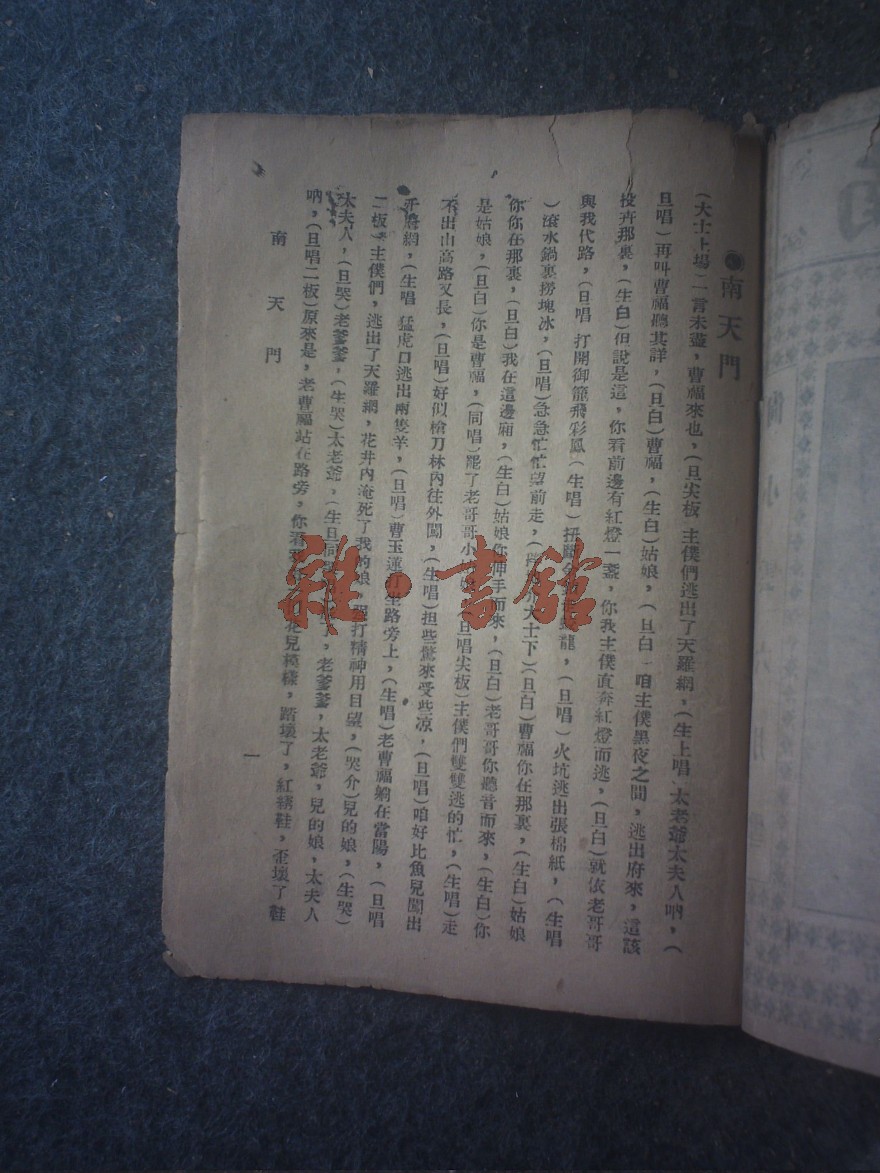 南天門
(大士上場)一言未盡，曹福來也，(旦尖板 主僕們逃出了天羅網，(生上唱、太老爺太夫人吶，(
旦唱)再叫曹福聽其詳，(旦白)曹福，(生白)姑娘，(旦白 咱主僕黑夜之間，逃出府來，這該
投奔那裏，(生白)但說是這，你看前邊有紅燈一盞，你我主僕直奔紅燈而逃，(旦白)就依老哥哥
與我代路，(旦唱 打開御籠飛彩鳳(生唱)扭 龍，(旦唱)火坑逃出張棉紙，(生唱
)滾水鍋裏撈塊冰，(旦唱)急急忙忙望前走，( 大士下)(旦白)曹福你在那裏，(生白)姑娘
你你在那裏，(旦白)我在這邊廂，(生白)姑娘你伸手而來，(旦白)老哥哥你聽音而來，(生白)你
是姑娘，(旦白)你是曹福，(同唱)罷了老哥哥小 旦唱尖板)主僕們雙雙逃的忙，(生唱)走
不出山高路又長，(旦唱)好似槍刀林內往外闖，(生唱)担些驚來受些凉，(旦唱)咱好比魚兒闖出
網，(生唱 猛虎口逃出兩隻羊，(旦唱)曹玉蓮 坐路旁上，(生唱)老曹福躺在當陽，(旦唱
二板)主僕們，逃出了天羅網，花井內淹死了我的娘，強打精神用目望，(哭介)兒的娘，(生哭)
太夫人，(旦哭)老爹爹，(生哭)太老爺，(生旦同 ，老爹爹，太老爺，兒的娘，太夫人
吶，(旦唱二板)原來是，老曹福站在路旁，你看 花兒模樣，踏壞了，紅綉鞋，歪壞了鞋
南天門
一
雜·書館